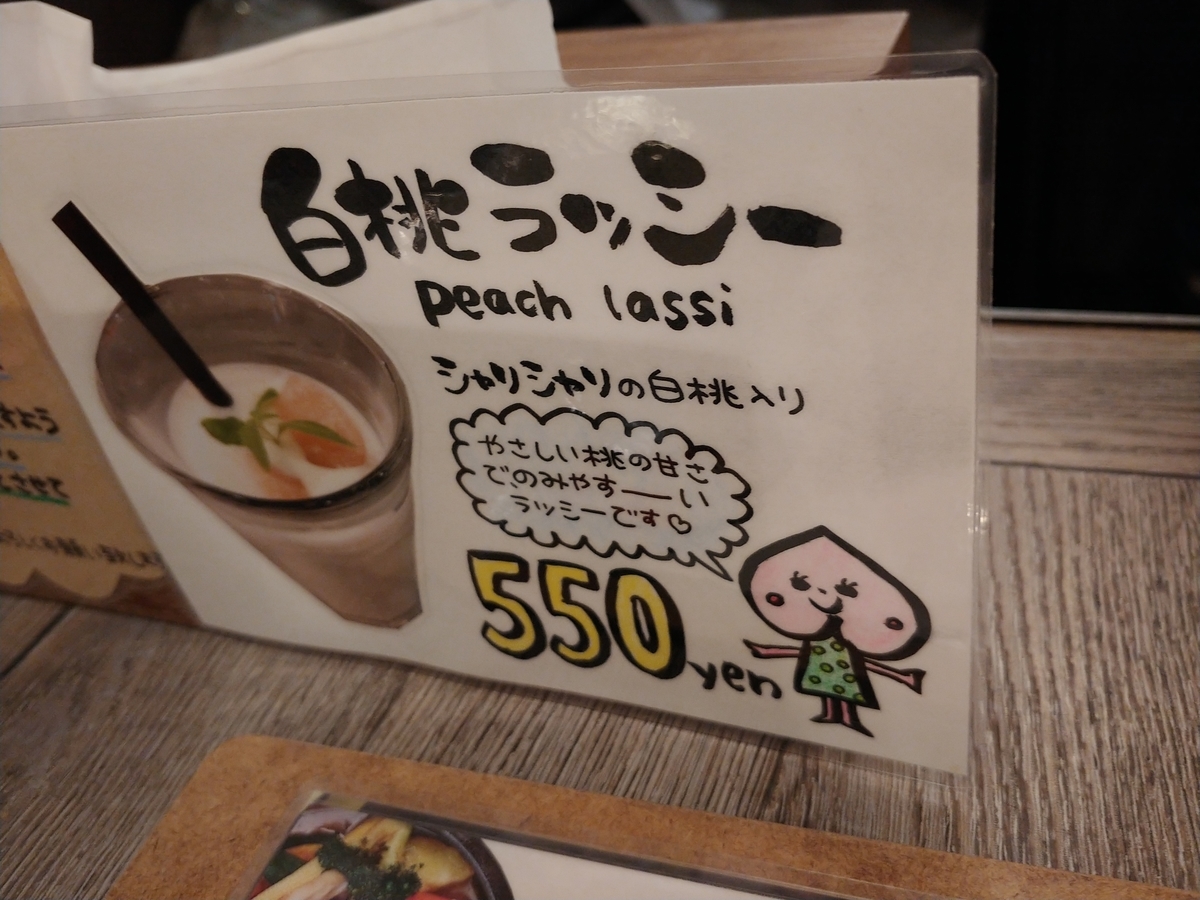 白桃ラッシー
peach lassi
シャリシャリの白桃入り
やさしい桃の甘さ
でのみやすーーい
ラッシーです♡
550yen
させて